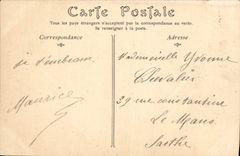 Carte Postale
Tous les pays étrangers n'acceptent pas la correspondance au verso.
Se renseigner à la poste.
Correspondance
Adresse
Maurice
Mademoiselle Yvonne
Chevalier
39 rue constantine
Le Mans
Sarthe